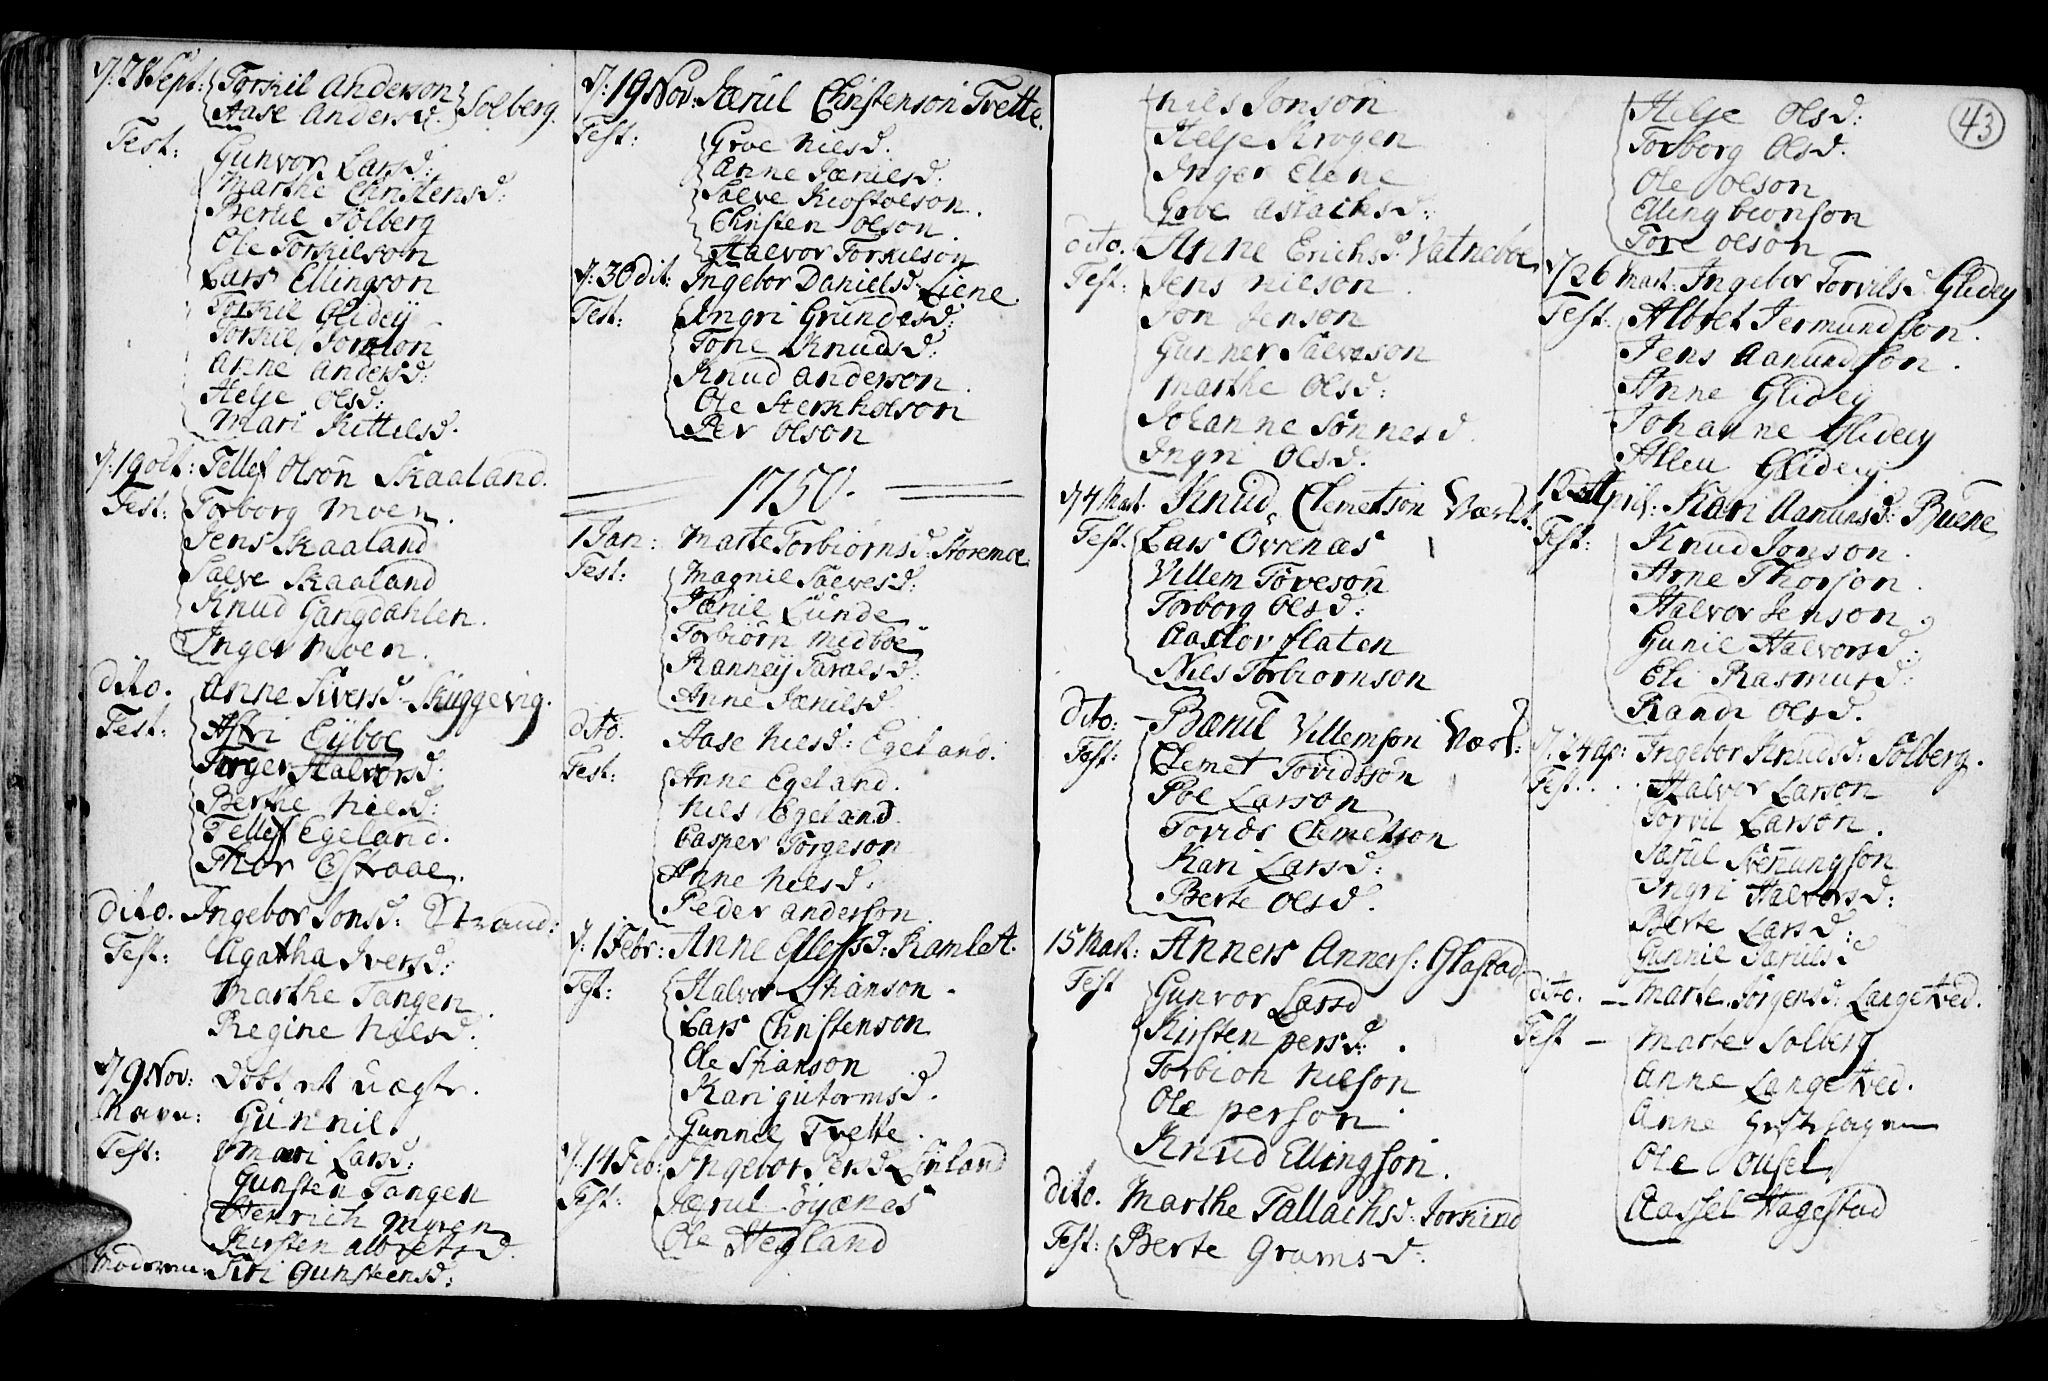 d: 28 Sept: Torkil Anderson } Solberg.
Aase Andersd: }
Test: Gunvor Larsd:
Marthe Christensd:
Bertil Solberg
Ole Torkilson
Lars Ellingson
Torkil Glidey
Torkil
Anne Andersd:
Helje Olsd:
Mari Kittilsd.
d: 19 oct: Tellef Olson Skaaland.
Test: Torborg Moen.
Jens Skaaland
Salve Skaaland
Knud Gangdahlen.
Inger Moen.
dito. Anne Siversd: Skuggevig.
Test: Astri Eyboe
Torger Halvorsd:
Berthe Nielsd:
Tellef Egeland.
Thor
dito. Ingebor Jonsd: Strand:
Test: Agatha Iversd:
Marthe Tangen
Regine Nielsd.
d: 9 Nov: Døbt et Uægte.
Navn: Gunnil.
Test: Mari Larsd:
Gunsten Tangen
Henrich Myren
Kirsten Albretsd.
Moderen: Siri Gunsteensd:
d: 19 Nov: Jærul Christenson Tvette.
Test: Groe Nielsd.
Anne Jærulsd:
Salve Kiostolson.
Christen Olson.
Halvor Torkilson
d: 30 dit: Ingebor Danielsd: Liene
Test: Ingri Grundesd:
Tone Knudsd:
Knud Anderson.
Ole Sterkholson
Per Olson
1750.
1 Jan: Marte Torbiørnsd: Storemoe
Test: Magnil Salvesd:
Jærul Lunde
Torbiørn Midboe
Ranney Taralsd:
Anne Jærulsd.
dito. Aase Nielsd: Egeland.
Test: Anne Egeland.
Niels Egeland.
Casper Torgeson
Anne Nielsd.
Peder Anderson.
d: 1 Febr: Anne Ellefsd: Ramlet.
Test: Halvor Stianson.
Lars Christenson
Ole Stianson
Kari Gutormsd.
Gunnel Tvette.
d. 14 Feb: Ingebor Persd: Lonland
Test: Jærul Øygnes
Ole Hegland
Niels Jonson
Helje Krogen
Inger Elene
Groe Aslachsd:
dito. Anne Erichsd: Vatneboe
Test: Jens Nielson.
Jon Jenson
Gunner Salveson
Marthe Olsd:
Johanne Sønnesd.
Ingri Olsd.
d 4 Mart: Knud Clemetson
Test. Lars Ovrenæs
Villem Toveson
Torborg Olsd:
Aaslov Flaten
Niels Torbiornson
dito: Bærul Villemson
Test: Clemet Tovidsson
Roe Larson
Tovids Clemetson
Kari Larsd:
Berte Olsd.
15 Mart: Anners Anners: Glastad
Test Gunvor Larsd
Kirsten Persd:
Torbion Nielson
Ole Person.
Knud Ellingson.
dito. Marthe Tallachsd: Jorkind
Test: Berte Gramsd:
43
Helje Olsd:
Torborg Olsd.
Ole Olson
Elling Bionson
Tore Olson
d 26 Mart. Ingebor Torvilsd. Glidey
Test. Albret Jermundson.
Jens Aanundson.
Anne Glidey
Johanne Glidey
Alleu Glidey.
10 April: Kari Aanunsd: Buene
Test: Knud Jonson.
Arne Thorson.
Halvor Jenson.
Gunil Halvorsd:
Eli Rasmusd:
Randi Olsd.
d. 24 Ap: Ingebor Knudsd: Solberg.
Test. Halvor Larson
Torvil Larson.
Jærul Svenungson
Ingri Halvorsd:
Berte Larsd:
Gunnil Jærulsd
dito. Marte Jørgensd: Langetved.
Test Marte Solberg
Anne Langetved.
Anne
Ole
Aassel Hagestad